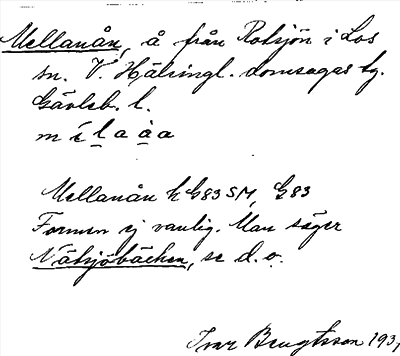 Mellanån, å från Roksjön i Los
sn. V. Hälsingl. domsagas tg.
Gävleb. l.
m í l a à a
Mellanån k G83 SM, G83
Formen ej vanlig. Man säger
Näksjöbäcken, se d. o.
Ivar Bengtsson 193